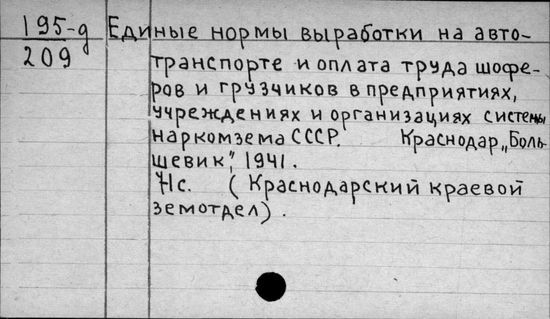 195-д Единые нормы выработки на авто-
209 транспорте и оплата труда шофе-
ров и грузчиков в предприятиях,
учреждениях и организациях системы
наркомзема СССР. Краснодар, „Боль-
шевик“, 1941.
71с. (Краснодарский краевой
земотдел).